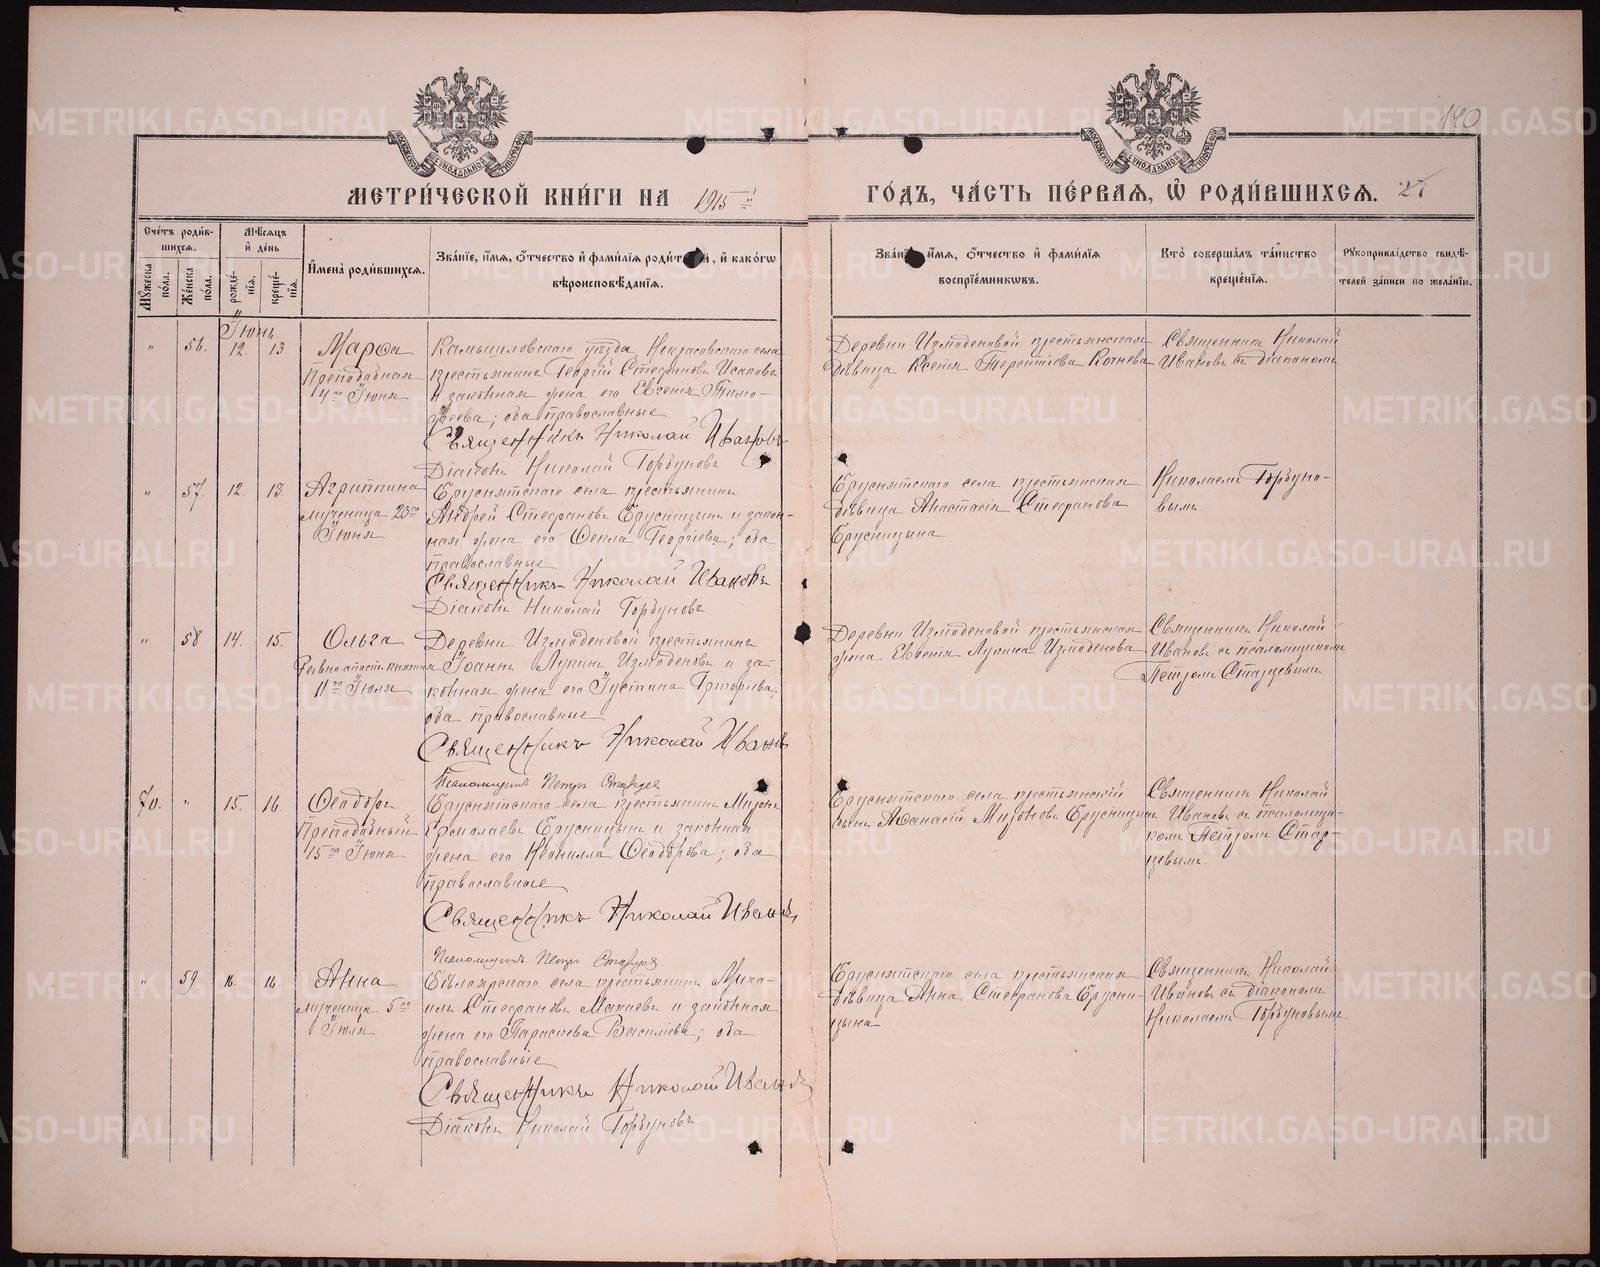 140
МЕТРИ́ЧЕСКОЙ КНИ́ГИ НА 1915 й ГО́ДЪ, ЧА́СТЬ ПЕ́РВАЯ, Ѽ РОДИ́ВШИХСЯ.
Сче́тъ роди́в-
шихся.
Му́жеска по́ла.
Же́нска по́ла.
Мѣ́сяцъ
и҆ де́нь
рожде́-
нїя.
креще́-
нїя.
И҆мена̀ роди́вшихся.
Зва́нїе, и҆́мя, ѻ҆́тчество и҆ фами́лїя роди́телей, и҆ како́гѡ
вѣроисповѣ́данїя.
Зва́нїе, и҆́мя, ѻ҆́тчество и҆ фами́лїя
воспрїе́мникѡвъ.
Кто̀ соверша́лъ та́инство
креще́нїя.
Рꙋкоприкла́дство свидѣ́-
телей за́писи по жела́нїю.
Іюнь
" 56. 12. 13. Марѳа
Преподобная
4го Іюня
Камышловскаго уѣзда, Некрасовскаго села
крестьянинъ Георгій Стефановъ Исаковъ
и законная жена его Евгенія Тимо-
феева; оба православные
Священникъ Николай Ивановъ
Діаконъ Николай Горбуновъ
Деревни Измоденовой крестьянская
дѣвица Ксенія Терентіева Кочнева
Священникъ Николай
Ивановъ съ діакономъ
" 57. 12. 13. Агриппина
мученица 23го
Іюня
Бруснятскаго села крестьянинъ
Андрей Стефановъ Брусницынъ и закон-
ная жена его Ѳекла Георгіева; оба
православные
Священникъ Николай Ивановъ
Діаконъ Николай Горбуновъ
Бруснятскаго села крестьянская
дѣвица Анастасія Стефанова
Брусницына
Николаемъ Горбуно-
вымъ
" 58 14. 15. Ольга
Равноапост. княгиня
11го Іюля
Деревни Измоденовой крестьянинъ
Іоаннъ Лукинъ Измоденовъ и за-
конная жена его Іустина Григоріева,
оба православные
Священникъ Николай Ивановъ
Псаломщикъ Петръ Старцевъ
Деревни Измоденовой крестьянская
жена Евгенія Лукина Измоденова
Священникъ Николай
Ивановъ съ псаломщикомъ
Петромъ Старцевымъ
70. " 15. 16. Ѳеодоръ
Преподобный
15го Іюня
Бруснятскаго села крестьянинъ Миронъ
Ермолаевъ Брусницынъ и законная
жена его Неонилла Ѳеодорова; оба
православные
Священникъ Николай Ивановъ
Псаломщикъ Петръ Старцевъ
Бруснятскаго села крестьянскій
сынъ Аѳанасій Мироновъ Брусницынъ
Священникъ Николай
Ивановъ съ псаломщи-
комъ Петромъ Стар-
цевымъ
" 59 16. 16 Анна
мученица 5го
Іюля
Бѣлоярскаго села крестьянинъ Миха-
илъ Стефановъ Макаевъ и законная
жена его Параскева Василіева; оба
православные
Священникъ Николай Ивановъ
Діаконъ Николай Горбуновъ
Бруснятскаго села крестьянская
дѣвица Анна Стефанова Брусни-
цына
Священникъ Николай
Ивановъ съ діакономъ
Николаемъ Горбуновымъ
METRIKI.GASO-URAL.RU